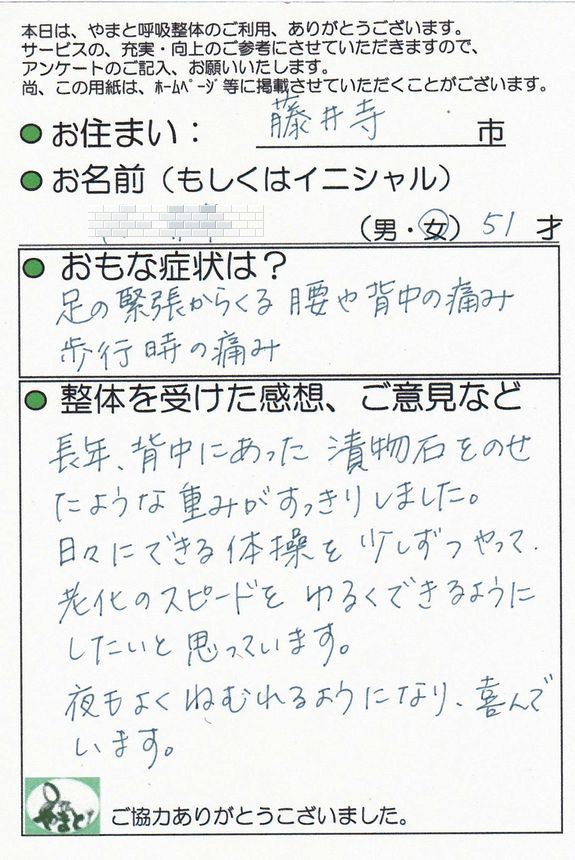 本日は、やまと呼吸整体のご利用、ありがとうございます。
サービスの、充実・向上のご参考にさせていただきますので、
アンケートのご記入、お願いいたします。
尚、この用紙は、ﾎｰﾑﾍﾟｰｼﾞ等に掲載させていただくことがございます。
●お住まい： 藤井寺 市
●お名前（もしくはイニシャル）
（男・女） 51 才
●おもな症状は？
足の緊張からくる 腰や背中の痛み
歩行時の痛み
●整体を受けた感想、ご意見など
長年、背中にあった 漬物石をのせ
たような重みがすっきりしました。
日々にできる体操を 少しずつやって、
老化のスピードを ゆるくできるように
したいと思っています。
夜もよくねむれるようになり、喜んで
います。
やまと
ご協力ありがとうこざいました。